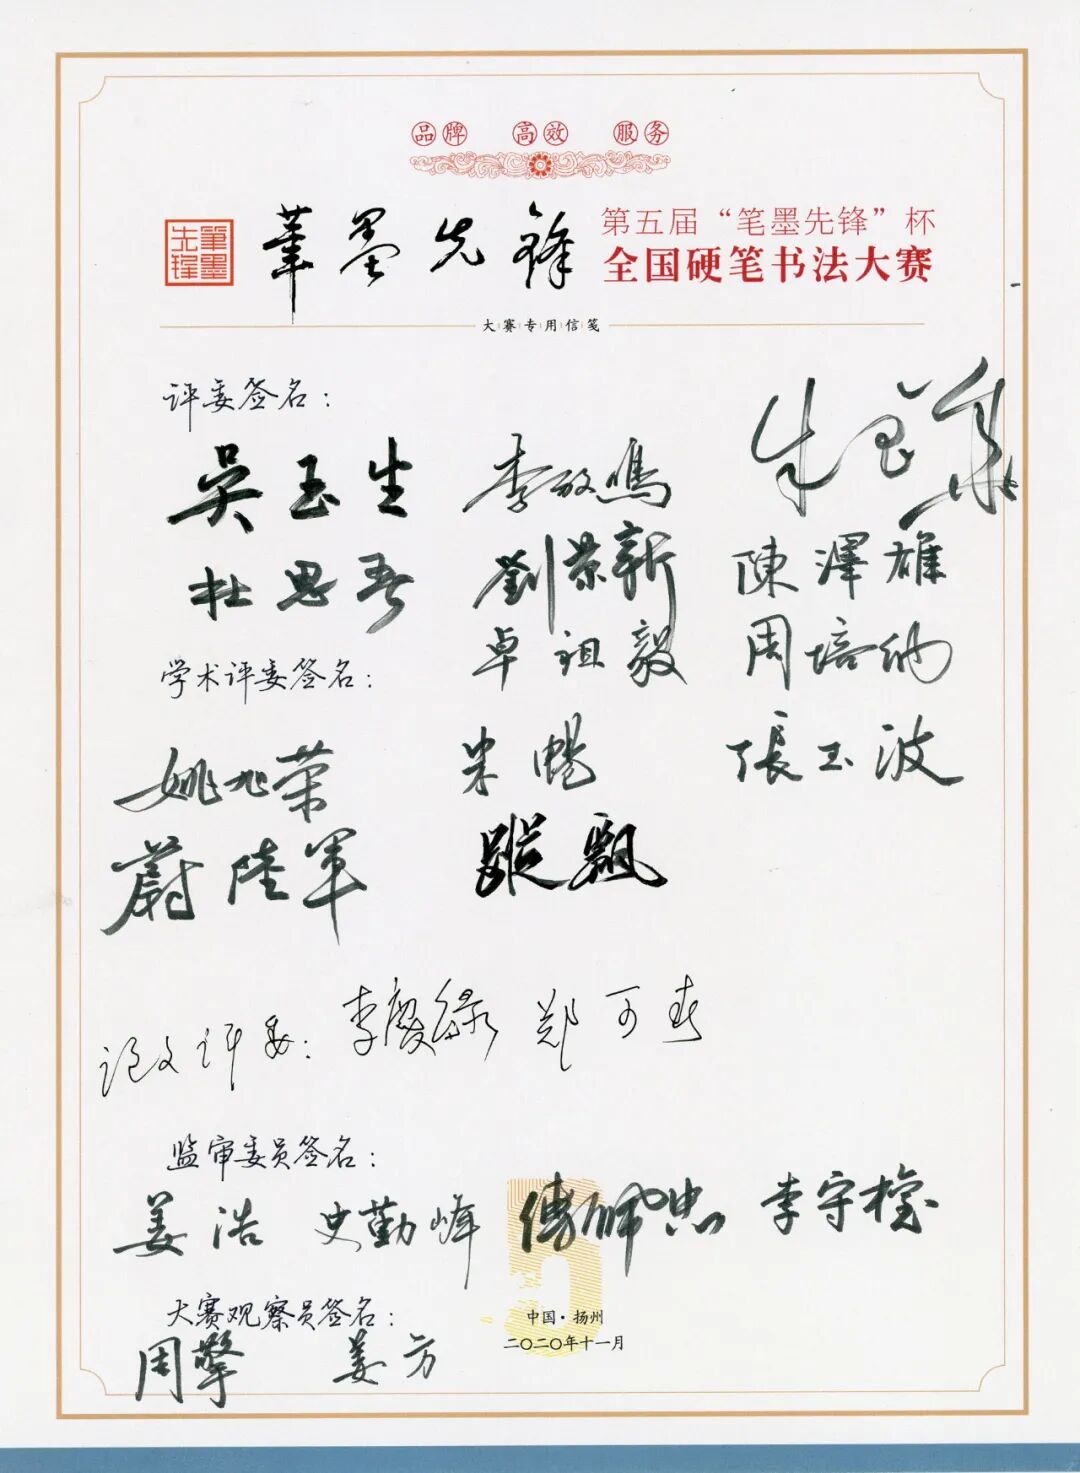 品牌 高效 服务
筆墨先鋒
筆墨先鋒
第五届“笔墨先锋”杯
全国硬笔书法大赛
大赛专用信笺
评委签名：
吴玉生 李放鸣
杜思吾 劉景新 陳澤雄
卓祖毅 周培纳
学术评委签名：
姚兆荣 朱暢 張玉波
蔚陸軍 飘
论文评委：李慶绿 郑可春
监审委员签名：
姜浩 史勤峰 傅佩忠 李守栓
大赛观察员签名：
周擎 姜方
中国·扬州
二〇二〇年十一月